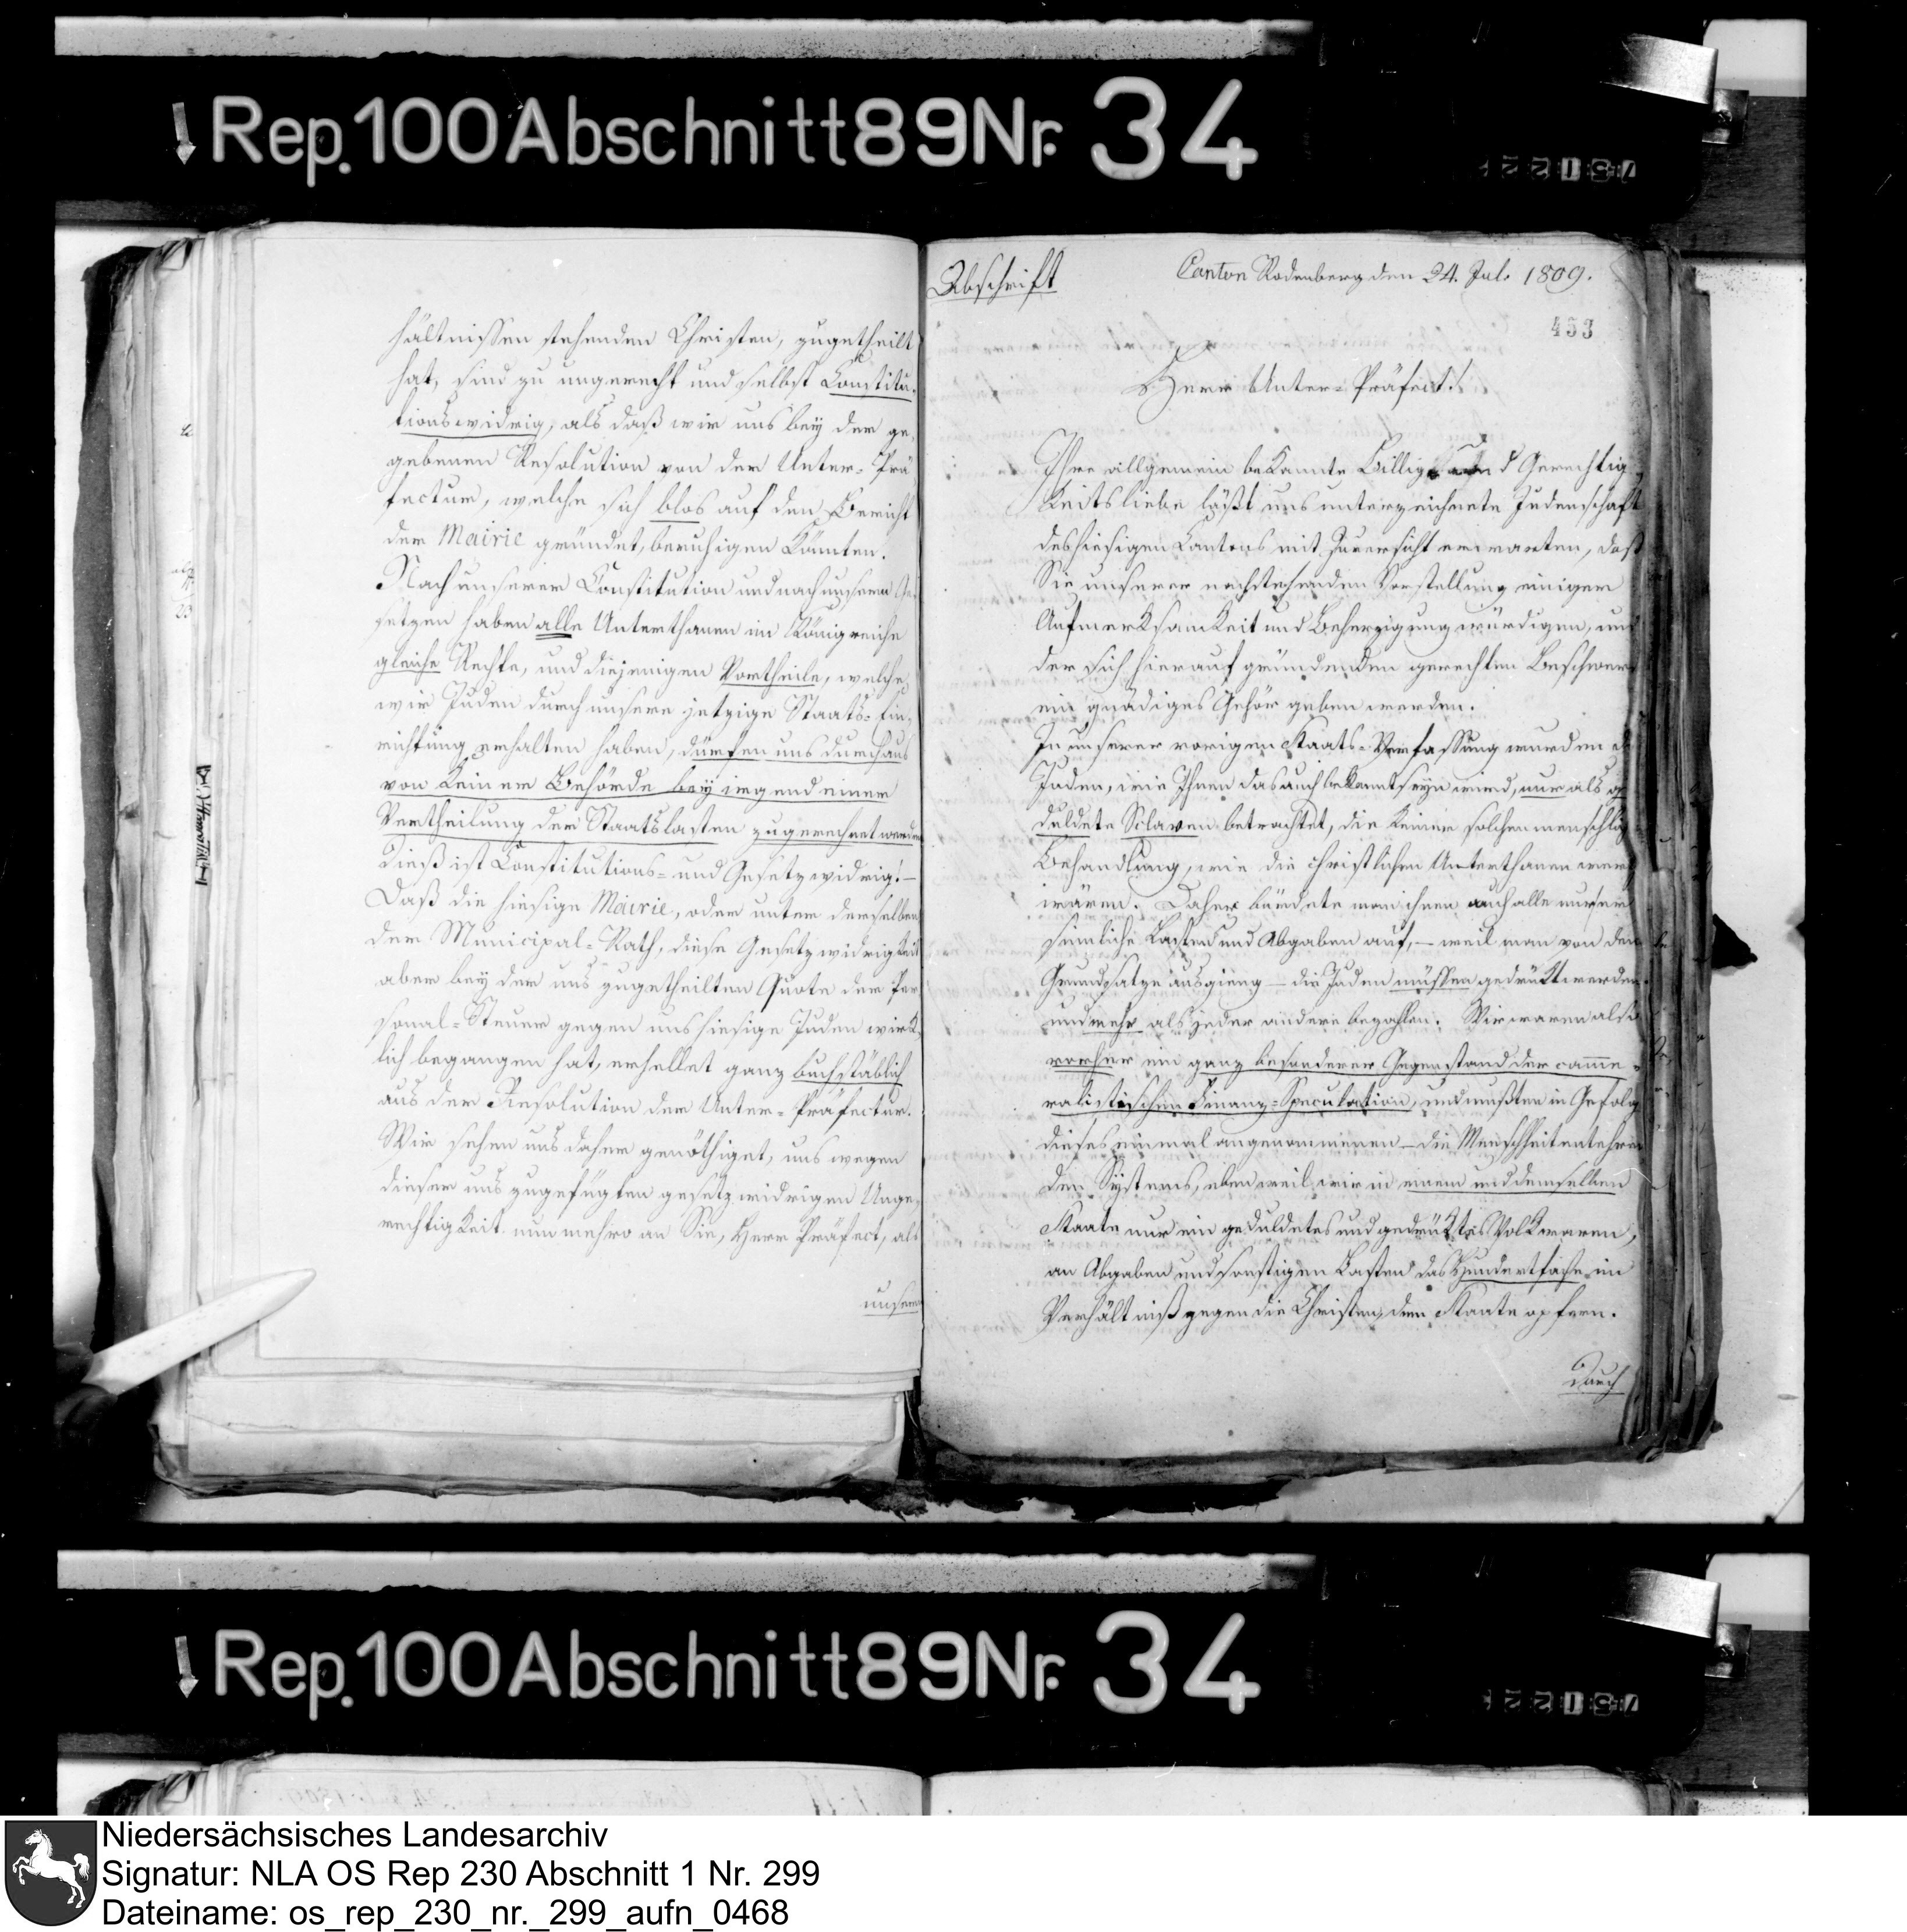 Rep. 100 Abschnitt 89 Nr. 34
hältnissen stehenden Christen, zugetheilt
hat, sind zu ungerecht und selbst Constitu-
tionswidrig, als daß wir uns bey der ge-
gebenen Resolution von der Unter-Prä-
fectur, welche sich blos auf den Bericht
der Mairie gründet, beruhigen könnten.
Nach unserer Constitution und nach unsern Ge-
setzen haben alle Unterthanen im Königreiche
gleiche Rechte, und diejenigen Vortheile, welche
wir Juden durch unsere jetzige Staats-Ein-
richtung erhalten haben, dürfen uns durchaus
von keiner Behörde bey irgend einer
Vertheilung der Staatslasten zugerechnet werden
dieß ist Constitutions- und Gesetzwidrig! –
Daß die hiesige Mairie, oder unter derselben
der Municipal-Rath, diese Gesetzwidrigkeit
aber bey der uns zugetheilten Quote der Per-
sonal-Steuer gegen uns hiesige Juden wirk-
lich begangen hat, erhellet ganz buchstäblich
aus der Resolution der Unter-Präfectur.
Wir sehen uns daher genöthiget, uns wegen
dieser uns zugefügten gesetzwidrigen Unge-
rechtigkeit nunmehro an Sie, Herr Präfect, als
unsern
Abschrift
Canton Rodenberg den 24. Jul. 1809.
453
Herr Unter-Präfect!
Ihre allgemein bekannte Billig und Gerechtig-
keitsliebe läßt uns unterzeichnete Judenschaft
des hiesigen Cantons mit Zuversicht erwarten, daß
Sie unserer nachstehenden Vorstellung einiger
Aufmerksamkeit und Beherzigung würdigen, und
der sich hierauf gründenden gerechten Beschwer
ein gnädiges Gehör geben werden.
In unserer vorigen Staats-Verfassung wurden
Juden, wie Ihnen das auch bekannt seyn wird, nur als ge
duldete Sclaven betrachtet, die keiner solchen menschlich
Behandlung, wie die christlichen Unterthanen werth
wären. Daher bürdete man ihnen auch alle nur er
sinnliche Lasten und Abgaben auf, – weil man von dem
Grundsatze ausgieng – die Juden müssen gedrückt werden
und mehr als jeder andere bezahlen. Wir waren also
vorher ein ganz besonderer Gegenstand der came-
ralistischen Finanz-Speculation, und mußten in Gefolg
dieses einmal angenommenen – die Menschheit entehren
den Systems, eben weil wir in einem und demselben
Staate nur ein geduldetes und gedrücktes Volk waren,
an Abgaben und sonstigen Lasten das Hundertfache im
Verhältniß gegen die Christen, dem Staate opfern.
Durch
Rep. 100 Abschnitt 89 Nr. 34
Niedersächsisches Landesarchiv
Signatur: NLA OS Rep 230 Abschnitt 1 Nr. 299
Dateiname: os_rep_230_nr._299_aufn_0468